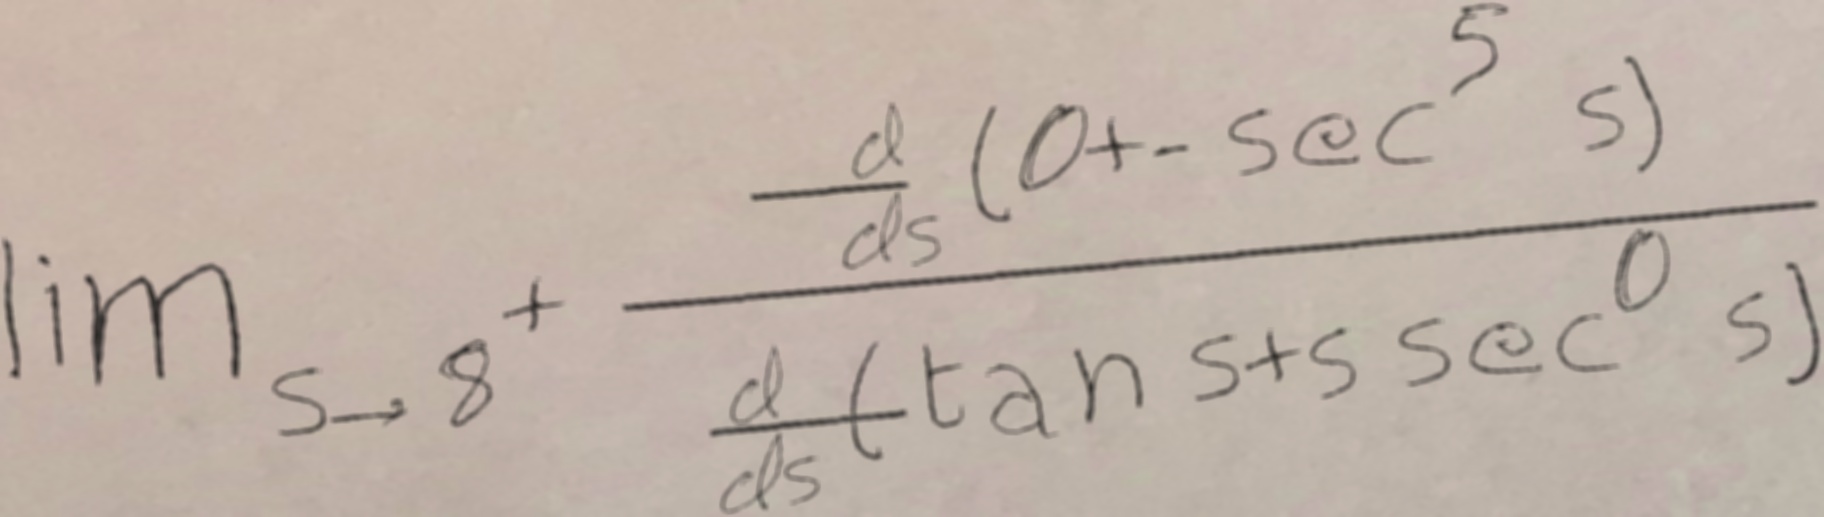 \lim_{s \to 8^+} \frac{\frac{d}{ds}(0+-\sec^5 s)}{\frac{d}{ds}(\tan s+s \sec^0 s)}